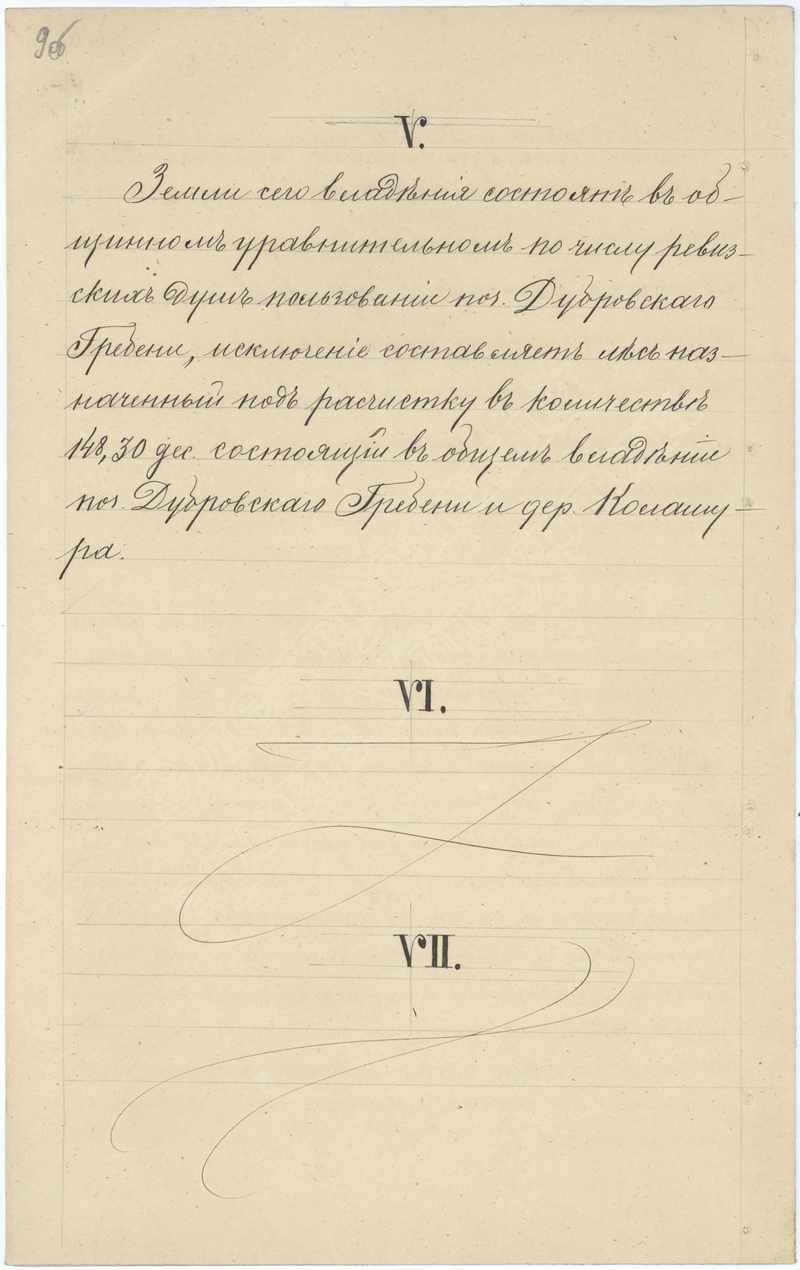 V.
Земли сего владѣнія состоятъ въ об-
щинномъ уравнительномъ по числу ревиз-
скихъ душъ пользованіи поч. Дубровскаго
Гребени, исключеніе составляетъ лѣсъ наз-
наченный подъ расчистку въ количествѣ
148,30 дес. состоящій въ общемъ владѣніи
поч. Дубровскаго Гребени и дер. Колашу-
ра.
VI.
VII.